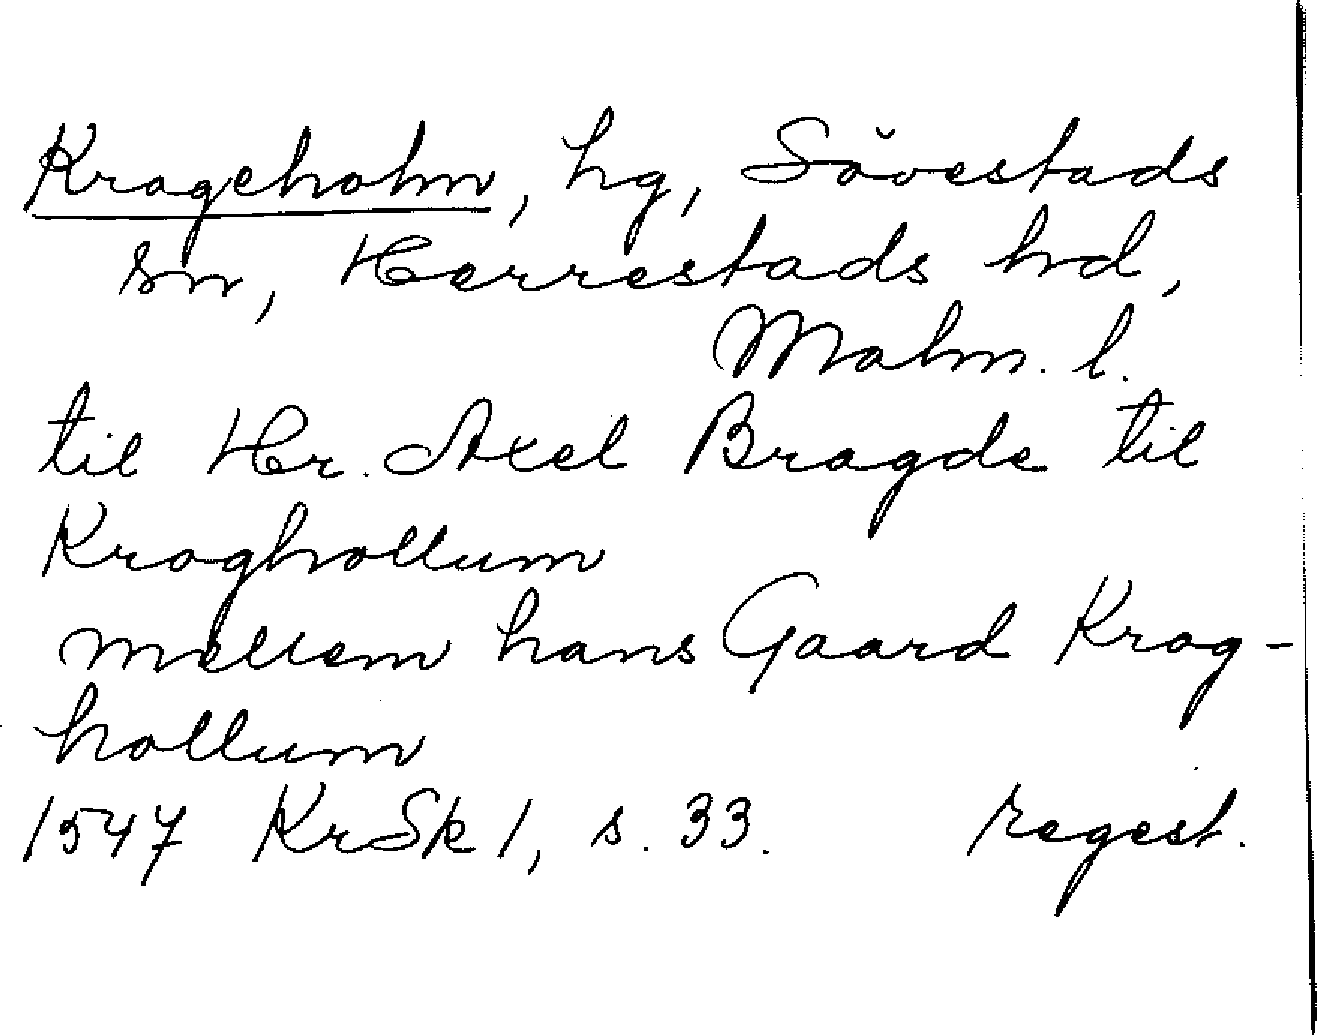 Krageholm, hg, Sövestads
sn, Herrestads hd,
Malm. l.
til Hr. Axel Bragde til
Kraghollum
mellem hans Gaard Krag-
hollum
1547 KrSk 1, s. 33. regest.